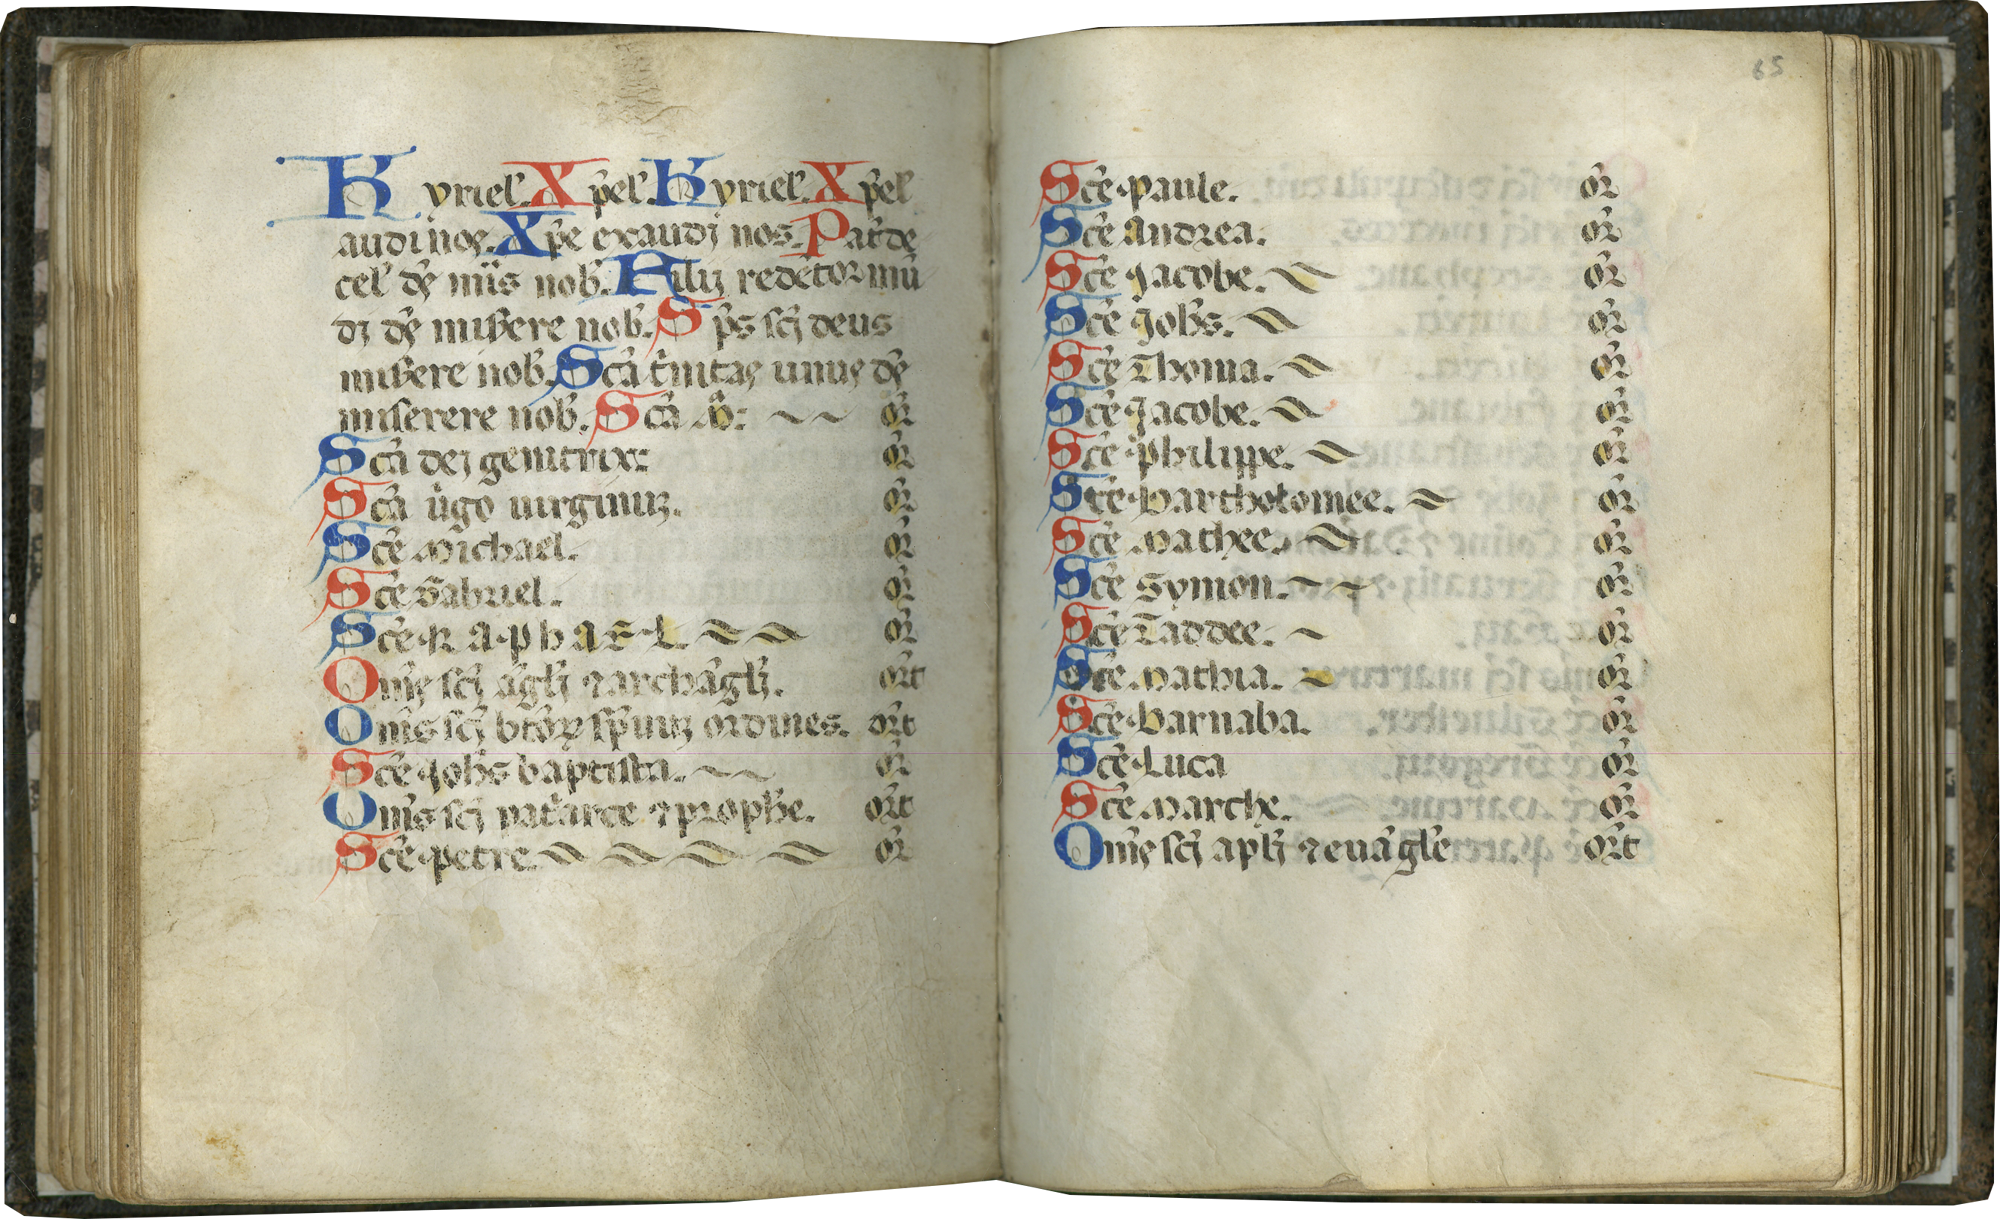 Kyriel. Xp̄el. Kyriel. Xp̄el
audi nos. Xp̄e exaudi nos. Pat̄ de
cel̄ ds̄ mīs nob̄. Filii redēptor mū
di ds̄ mis̄ere nob̄. Sp̄s sci deus
mis̄ere nob̄. Scā t̄nitas unus ds̄
miserere nob̄. Scā M̄: or̄
Scā dei genitrix: or̄
Scā ūgo uirginuꝫ. or̄
Scē Michael. or̄
Scē Gabriel. or̄
Scē Raphael. or̄
Om̄s sci āgli ⁊ archāgli. or̄t
Om̄s sci btōꝝ sp̄uuꝫ ordines. or̄t
Scē Joh̄s baptista. or̄
Om̄s sci pat̄arce ⁊ prophe. or̄t
Scē petre or̄
65
Scē Paule. or̄
Scē Andrea. or̄
Scē Jacobe. or̄
Scē Joh̄s. or̄
Scē Thoma. or̄
Scē Jacobe. or̄
Scē philippe. or̄
Scē Bartholomee. or̄
Scē Mathee. or̄
Scē Symon. or̄
Scē Taddee. or̄
Scē Mathia. or̄
Scē Barnaba. or̄
Scē Luca or̄
Scē Marche. or̄
Om̄s sci apli ⁊ euāgle or̄t